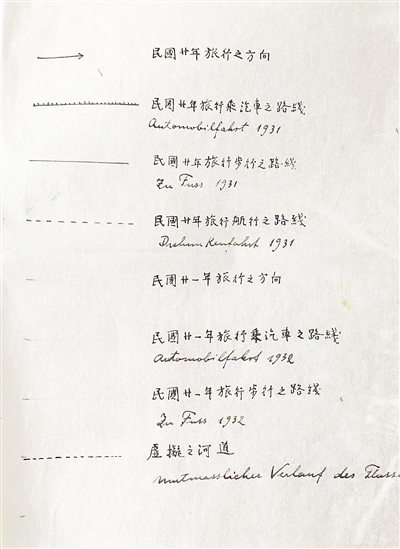 民國廿年旅行之方向
民國廿年旅行乘汽車之路綫
Automobilfahrt 1931
民國廿年旅行步行之路綫
Zu Fuss 1931
民國廿年旅行航行之路綫
1931
民國廿一年旅行之方向
民國廿一年旅行乘汽車之路綫
Automobilfahrt 1932
民國廿一年旅行步行之路綫
Zu Fuss 1932
虛擬之河道
mutmasslicher Verlauf des Flusse